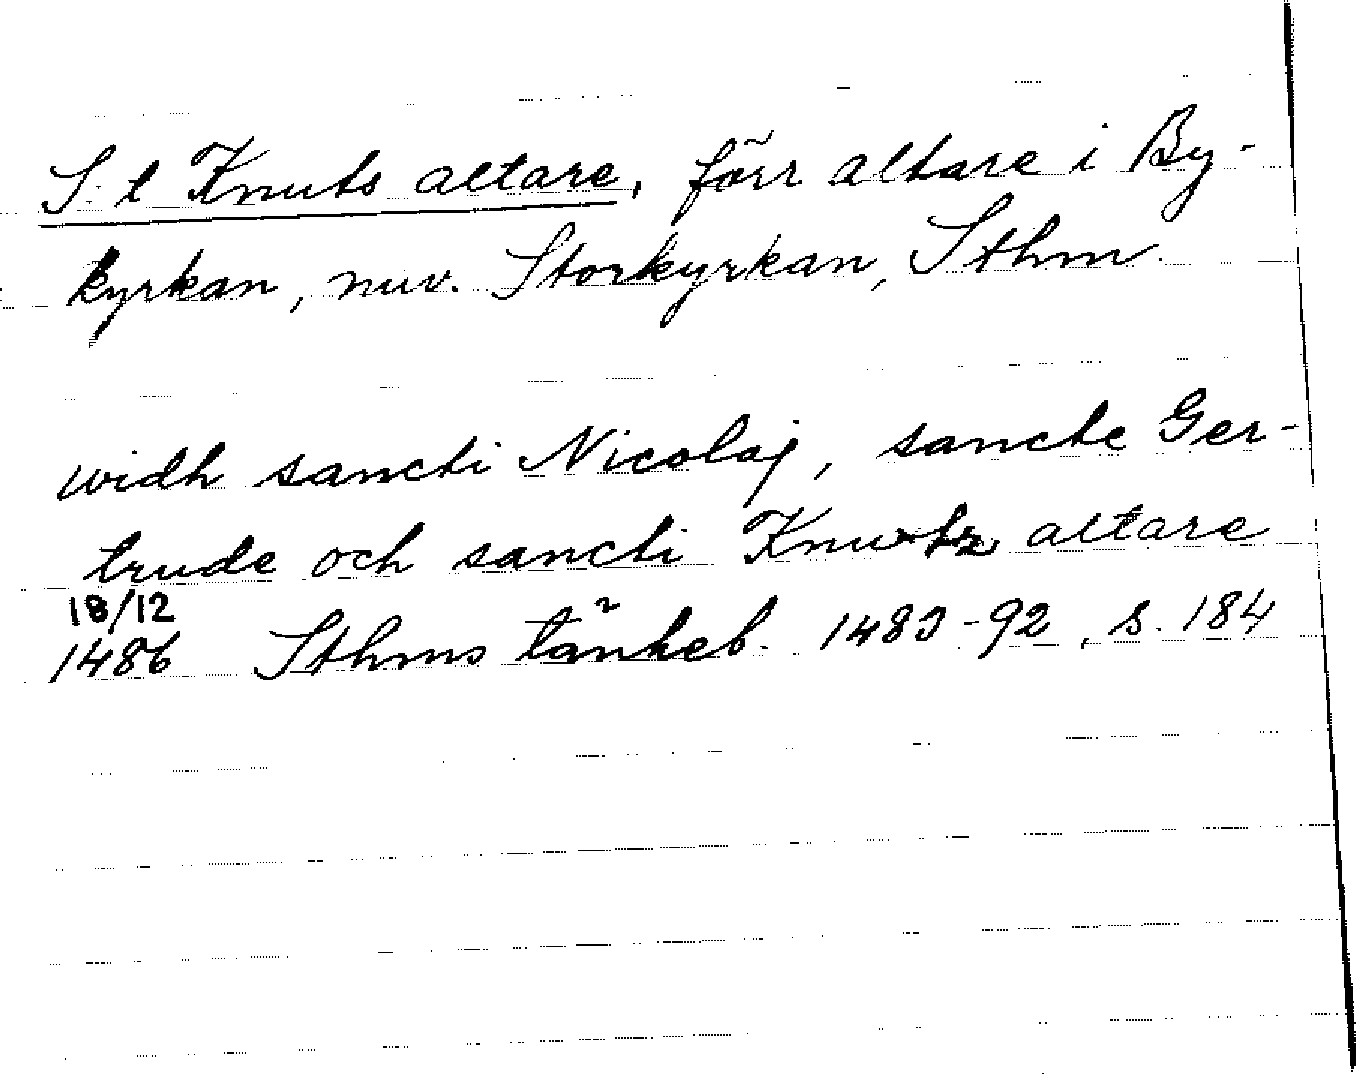 S:t Knuts altare, förr altare i By-
kyrkan, nuv. Storkyrkan, Sthm.
widh sancti Nicolaj, sancte Ger-
trude och sancti Knutz altare
18/12
1486 Sthms tänkeb. 1483-92, s. 184